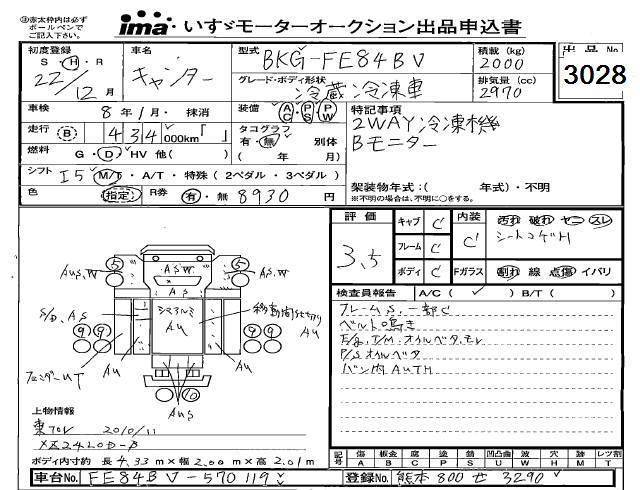 ㊟赤太枠内は必ず
ボールペンで
ご記入下さい。
ima いすゞモーターオークション出品申込書
初度登録 S・H・R
22/12月
車名 キャンター
型式 BKG-FE84BV
グレード・ボディ形状 冷蔵冷凍車
積載 (kg) 2000
排気量 (cc) 2970
出品No. 3028
車検 8年1月・抹消
走行 B 434000km「 」
燃料 G・D・HV 他( )
シフト I5 M/T・A/T・特殊(2ペダル・3ペダル)
色 指定 R券 有・無 8930円
装備 AC PS PW
タコグラフ
有・無 別体
( 年 月)
特記事項
2WAY冷凍機
Bモニター
架装物年式:( 年式)・不明
※不明の場合は、不明に○をする。
評価 3.5
キャブ C
フレーム C
ボディ C
内装 C
Fガラス
汚れ 破れ ヤニ スレ
シートコゲH
割れ 線 点傷 イバリ
検査員報告 A/C( ✓ ) B/T( )
フレームS,一部C
ベルト鳴き
E/g,T/M,オイルベタ,モレ
P/Sオイルベタ
バン内AUTH
5 5
AUS.W
ASW
AS.W
AS
S/D.AS
シマアルミ
AU
移動間仕切り
AU
9 9 9 9
フェンダーUT
AU
AU
10
AUS
上物情報
東プレ 2010/11
ボディ内寸約 長 4.33m×幅 2.00m×高 2.01m
記号
傷 板金 腐 塗 錆 凹凸曲 波 穴 跡 レツ割
A B C P S U W H M T
車台No. FE84BV-570119
登録No. 熊本 800 せ 3290